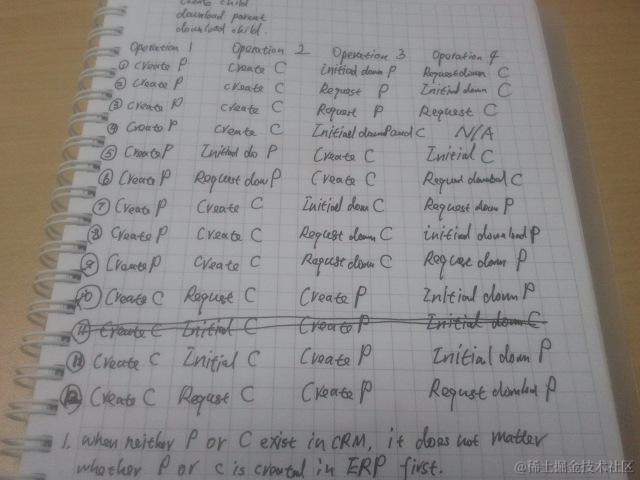 create child
download parent
download child.
Operation 1 Operation 2 Operation 3 Operation 4
① Create P Create C Initial down P Request down C
② Create P create C Request P Initial down C
③ Create P create C Request P Request C
④ Create P create C Initial down P and C N/A
⑤ Create P Initial do P Create C Initial C
⑥ Create P Request dow P Create C Request download C
⑦ Create P Create C Initial down C Request down P
⑧ Create P Create C Request down C initial download P
⑨ Create P Create C Request down C Request down P
⑩ Create C Request C Create P Initial down P
⑪ Create C Initial C Create P Initial down C
⑪ Create C Initial C Create P Initial down P
⑫ Create C Request C Create P Request download P
1. when neither P or C exist in CRM, it does not matter
whether P or c is created in ERP first.
@稀土掘金技术社区